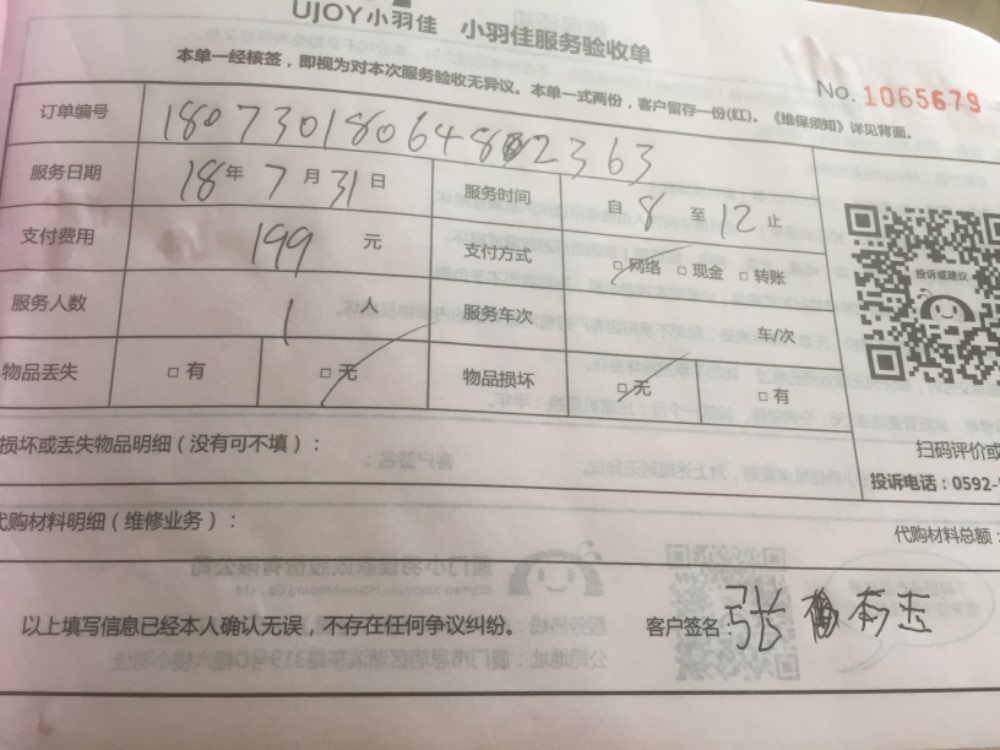 UJOY小羽佳 小羽佳服务验收单
本单一经核签，即视为对本次服务验收无异议。本单一式两份，客户留存一份(红)。《维保须知》详见背面。
No. 1065679
订单编号 180730180648 2363
服务日期 18年7月31日 服务时间 自8至12止
支付费用 199 元 支付方式 □网络 □现金 □转账
服务人数 1 人 服务车次 车/次
物品丢失 □有 □无 物品损坏 □无 □有
投诉或建议
扫码评价或
投诉电话：0592-
损坏或丢失物品明细（没有可不填）：
代购材料明细（维修业务）： 代购材料总额：
以上填写信息已经本人确认无误，不存在任何争议纠纷。 客户签名：张